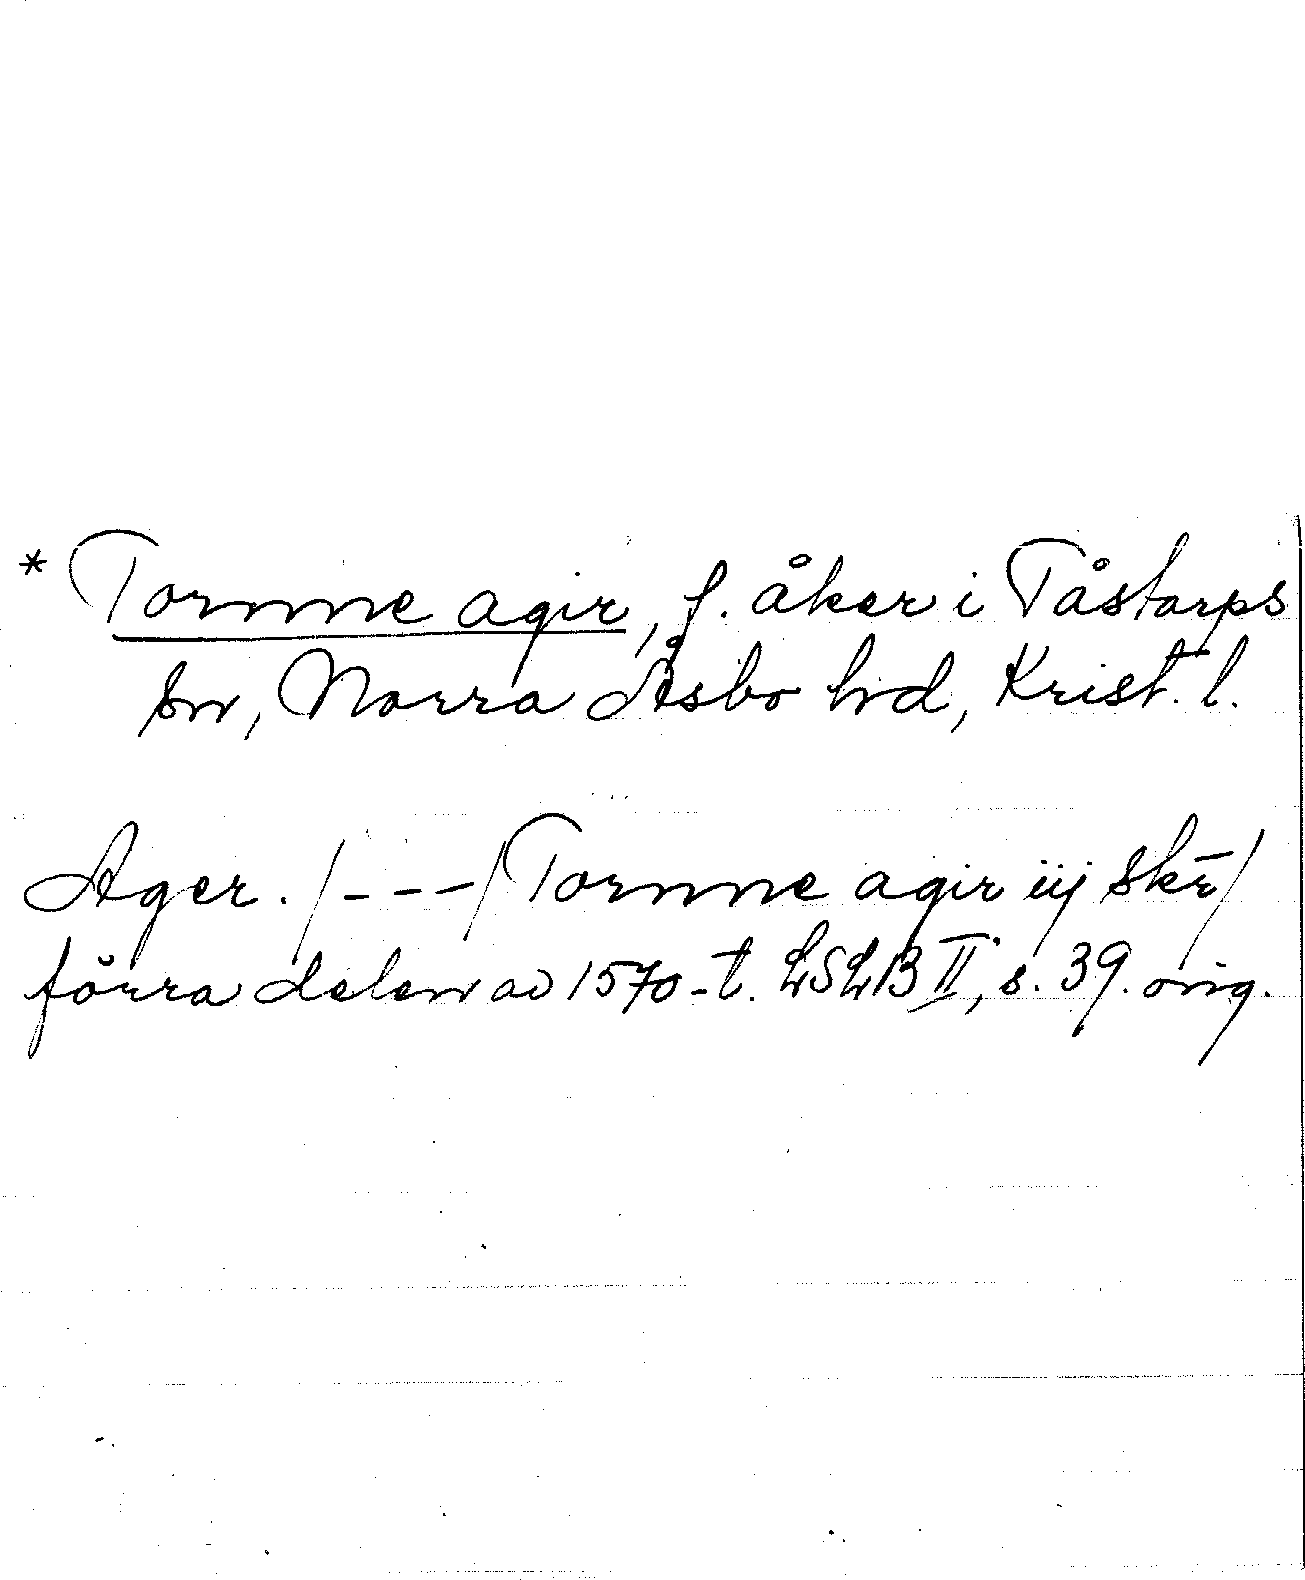 * Tornne agir, f. åker i Tåstarps
sn, Norra Åsbo hd, Krist. l.
Ager. /---/ Tornne agir iij skr̄/
förra delen av 1570-t. LSLB II, s. 39. orig.